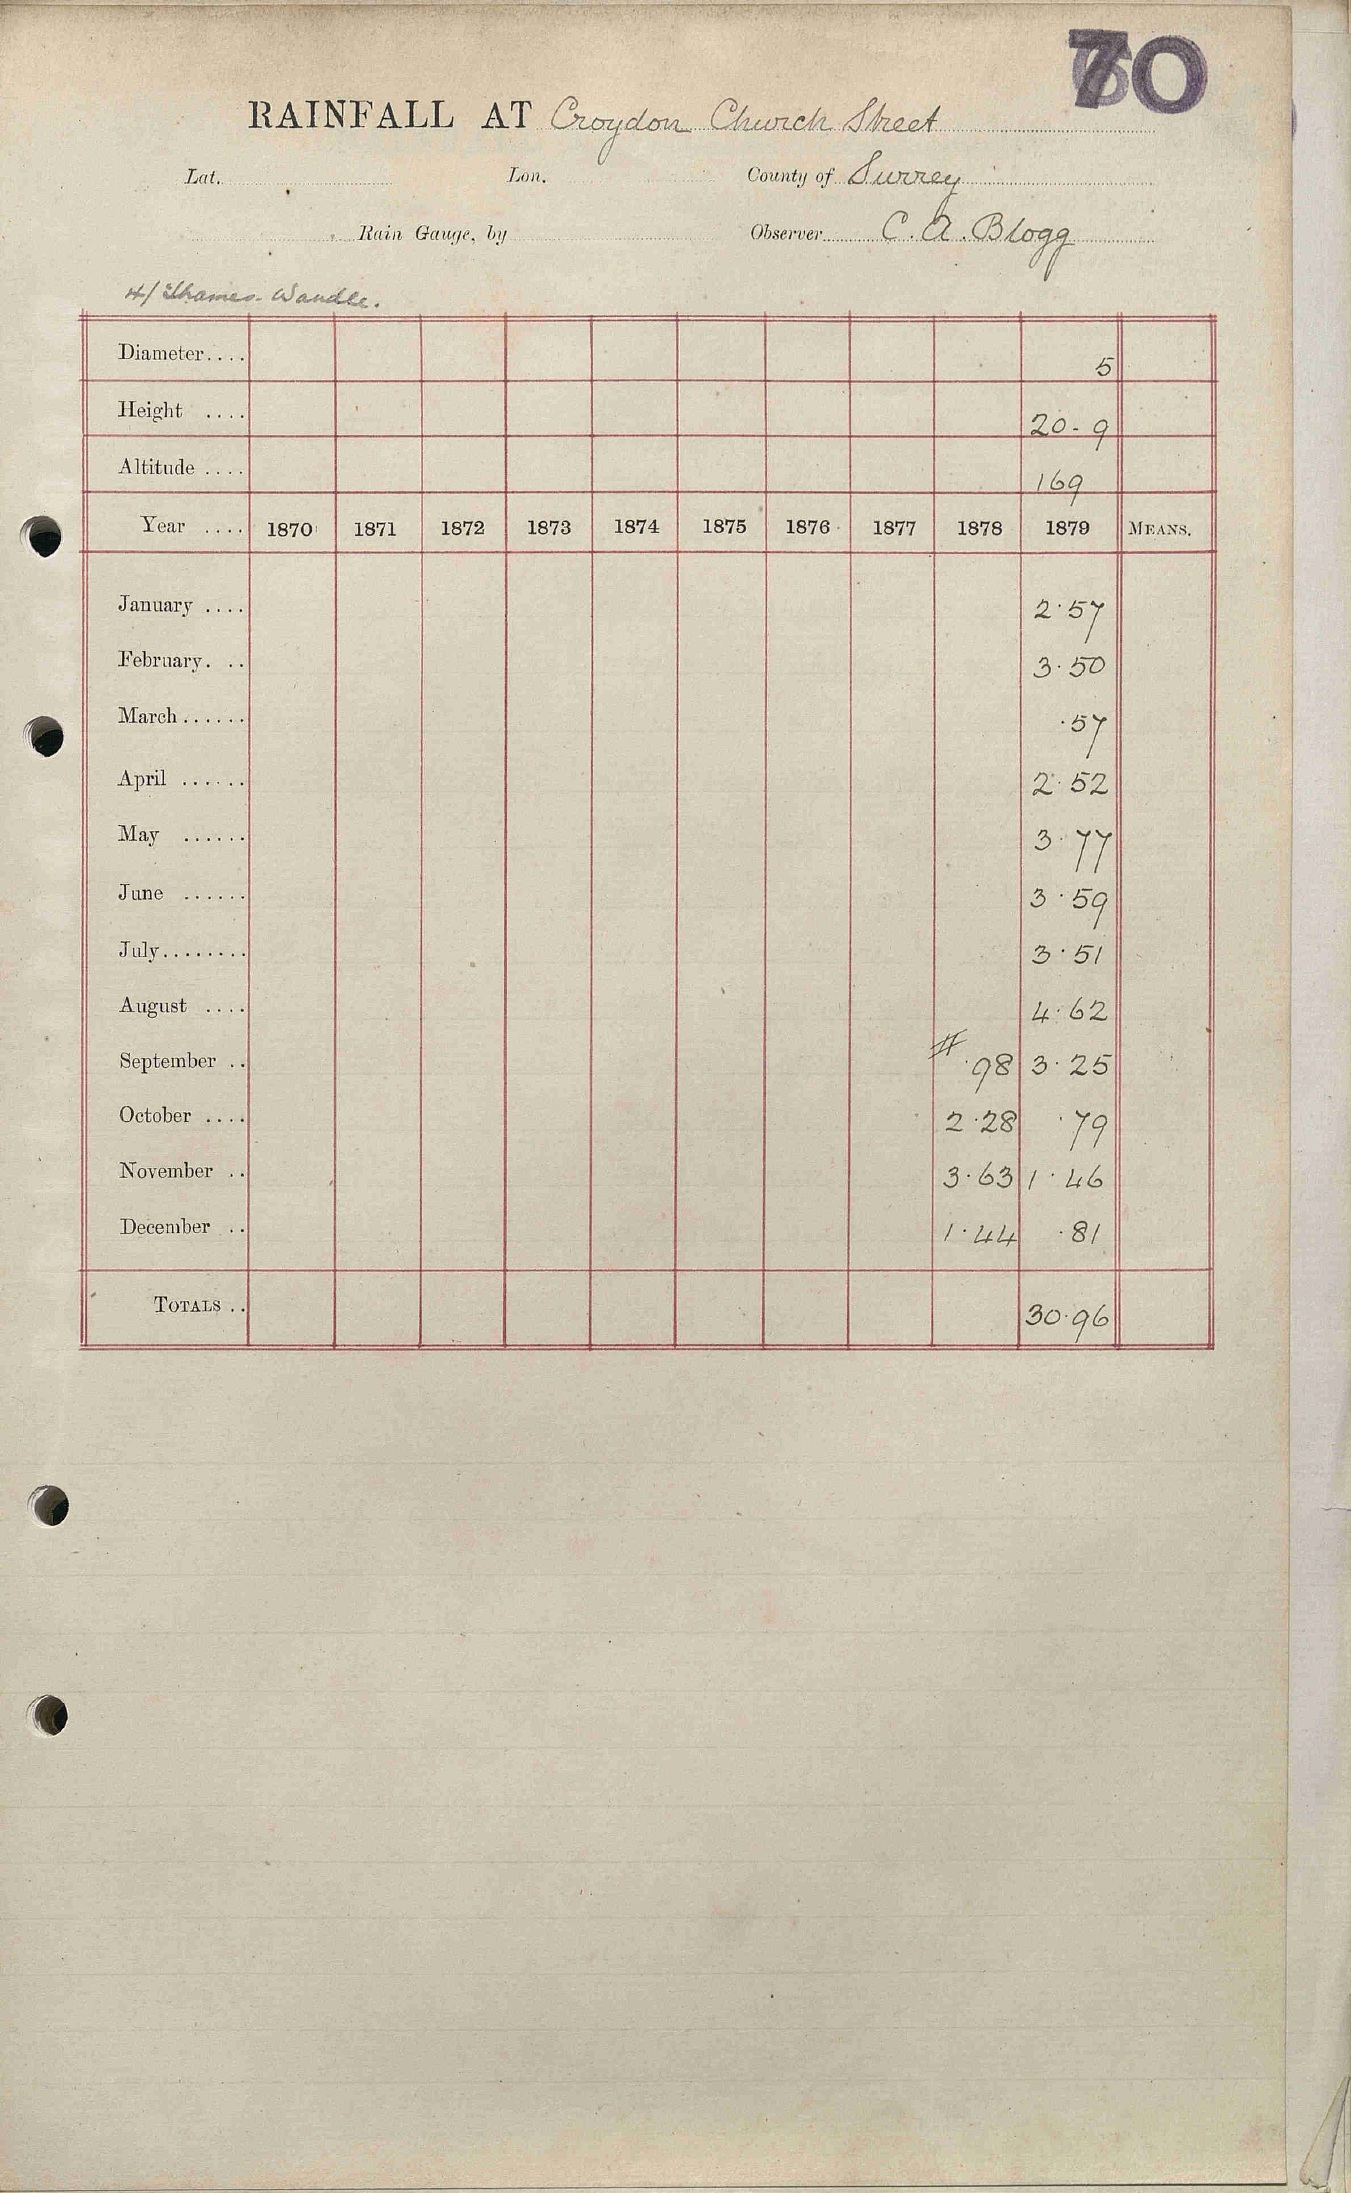 70
RAINFALL AT Croydon Church Street
Lat. Lon. County of Surrey
Rain Gauge, by Observer C. A. Blogg
4/ Thames - Wandle.
Diameter.... 5
Height .... 20 - 9
Altitude .... 169
Year .... 1870 1871 1872 1873 1874 1875 1876 1877 1878 1879 MEANS.
January .... 2.57
February. .. 3.50
March...... .57
April ...... 2.52
May ...... 3.77
June ...... 3.59
July........ 3.51
August .... 4.62
September .. # .98 3.25
October .... 2.28 .79
November .. 3.63 1.46
December .. 1.44 .81
TOTALS .. 30.96